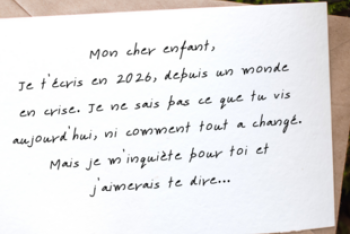 Mon cher enfant,
Je t'écris en 2026, depuis un monde
en crise. Je ne sais pas ce que tu vis
aujourd'hui, ni comment tout a changé.
Mais je m'inquiète pour toi et
j'aimerais te dire...